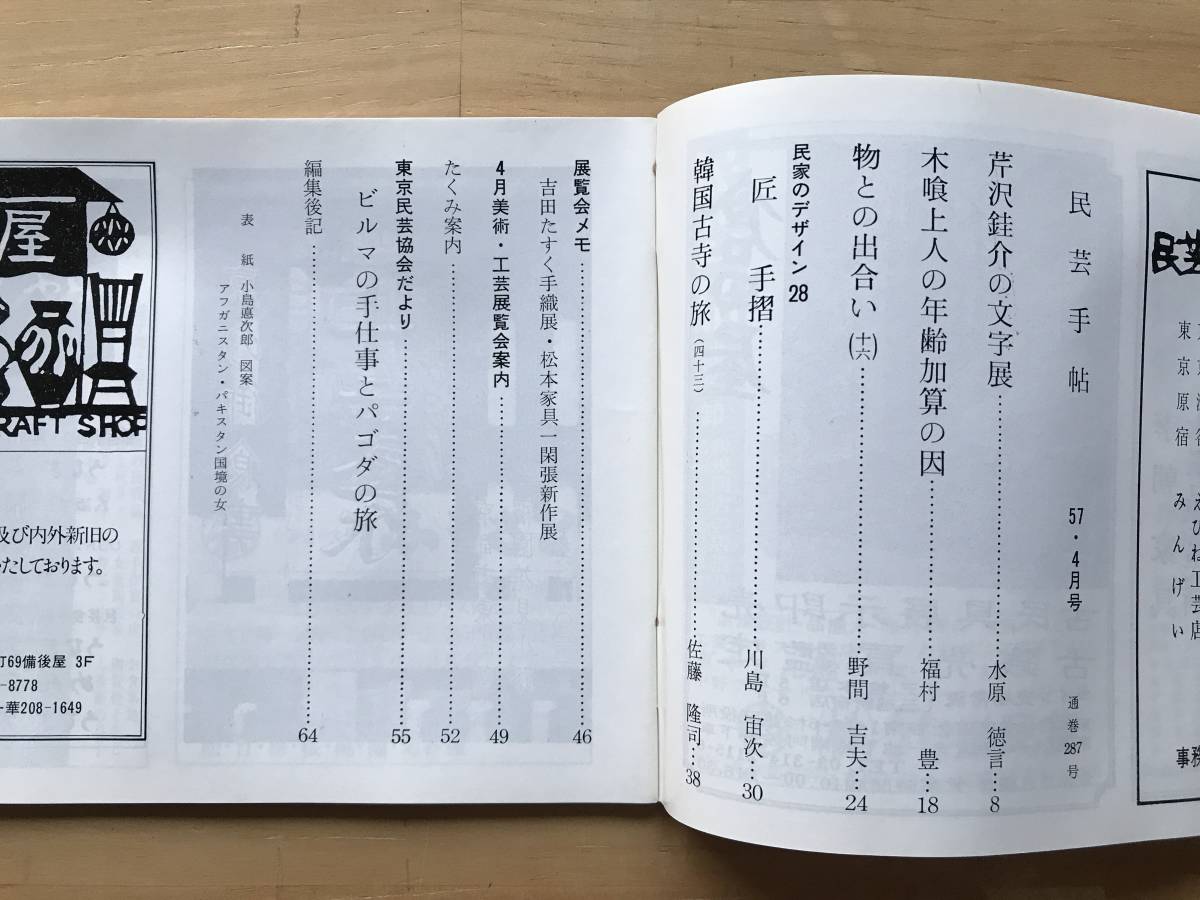 民芸手帖 57・4月号 通巻287号
芹沢銈介の文字展……水原 徳言…8
木喰上人の年齢加算の因……福村 豊…18
物との出合い(十六)……野間 吉夫…24
民家のデザイン 28
匠 手摺……川島 宙次…30
韓国古寺の旅(四十三)……佐藤 隆司…38
展覧会メモ……46
吉田たすく手織展・松本家具一閑張新作展
4月美術・工芸展覧会案内……49
たくみ案内……52
東京民芸協会だより……55
ビルマの手仕事とパゴダの旅
編集後記……64
表 紙 小島悳次郎 図案
アフガニスタン・パキスタン国境の女
東京原宿 みんげい
えびね工芸店
事務
屋
RAFT SHOP
及び内外新旧の
いたしております。
町69備後屋 3F
-8778
華208-1649